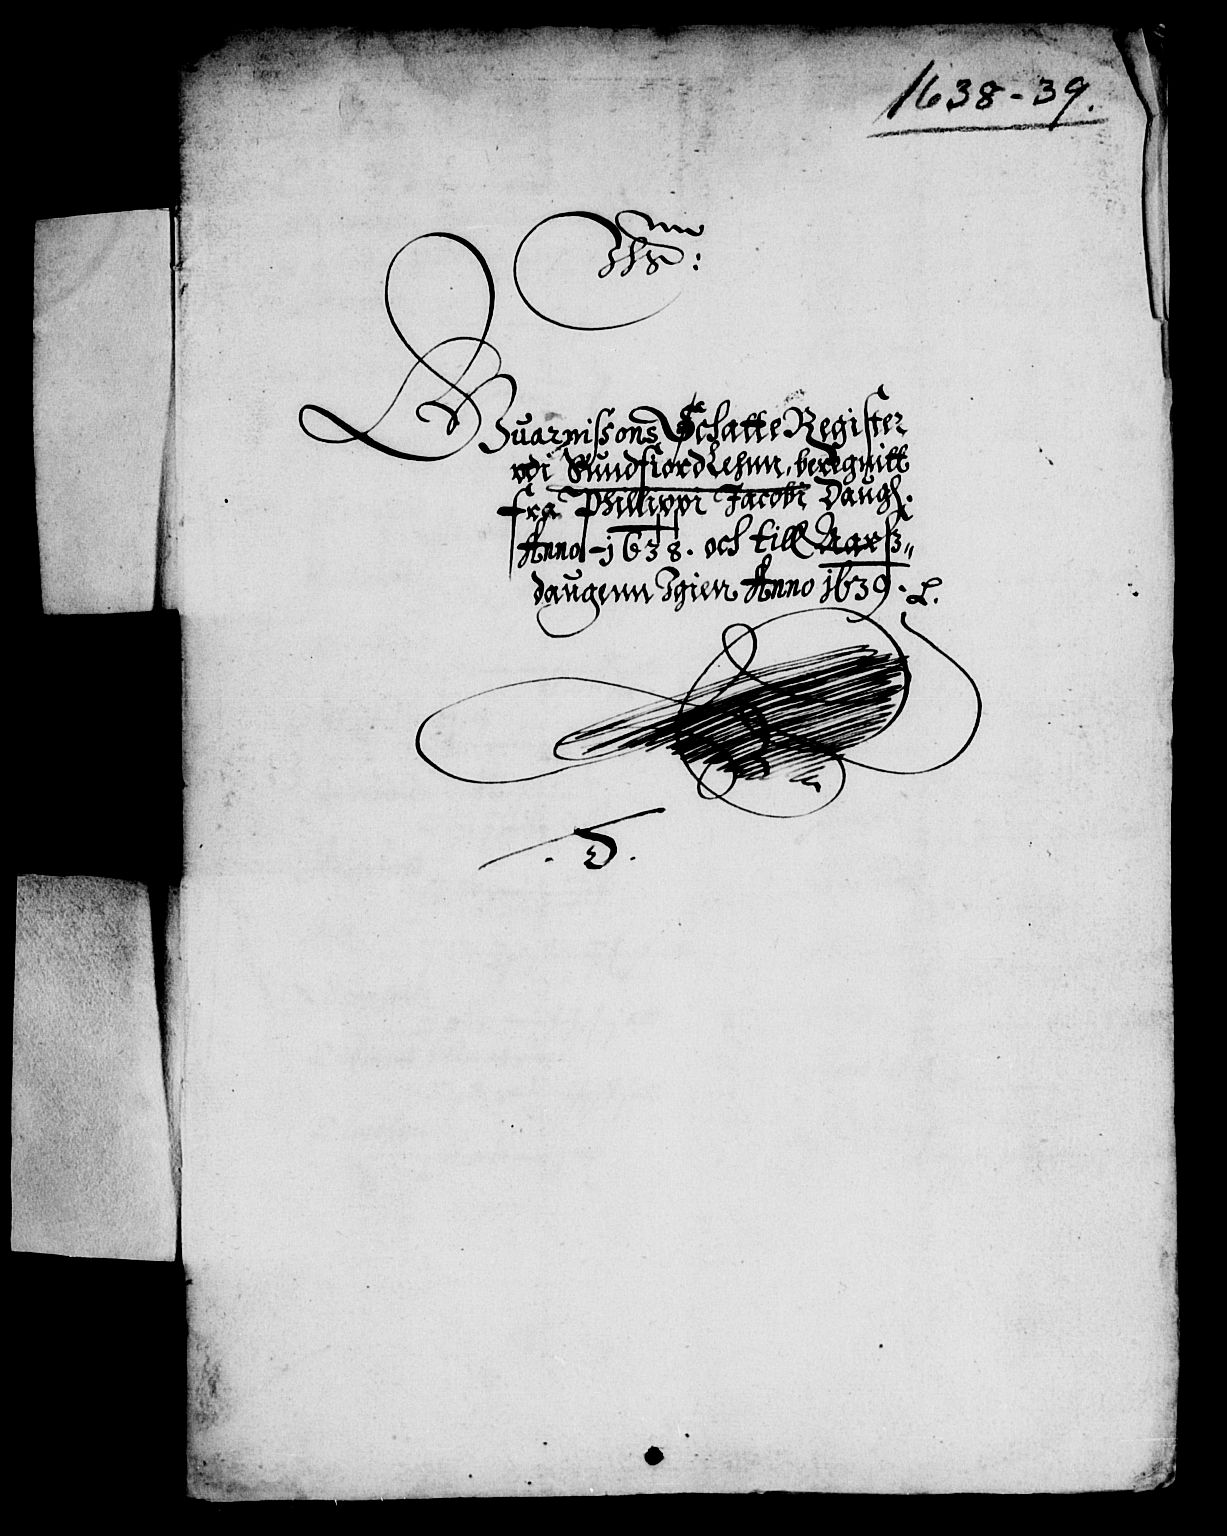 1638-39.
Guarnissons Schatte Register
vdi Sundfiord Lehnn, beregnitt
fra Philippi Jacobi Daugh.
Anno 1638. och till Aarß„
daugenn Igien Anno 1639.
D